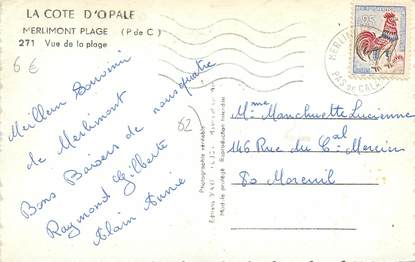 LA COTE D'OPALE
MERLIMONT PLAGE (P de C)
271 Vue de la plage
6 €
Meilleur Souvenir
de Merlimont
Bons Baisers de nous quatre
Raymond Gilberte
Alain Annie
62
Photographie véritable
Mod. le protégé Reproduction interdite
MERLIM
PAS DE CALAIS
Mme Manchuette Lucienne
146 Rue du Cal Mercier
80 Moreuil